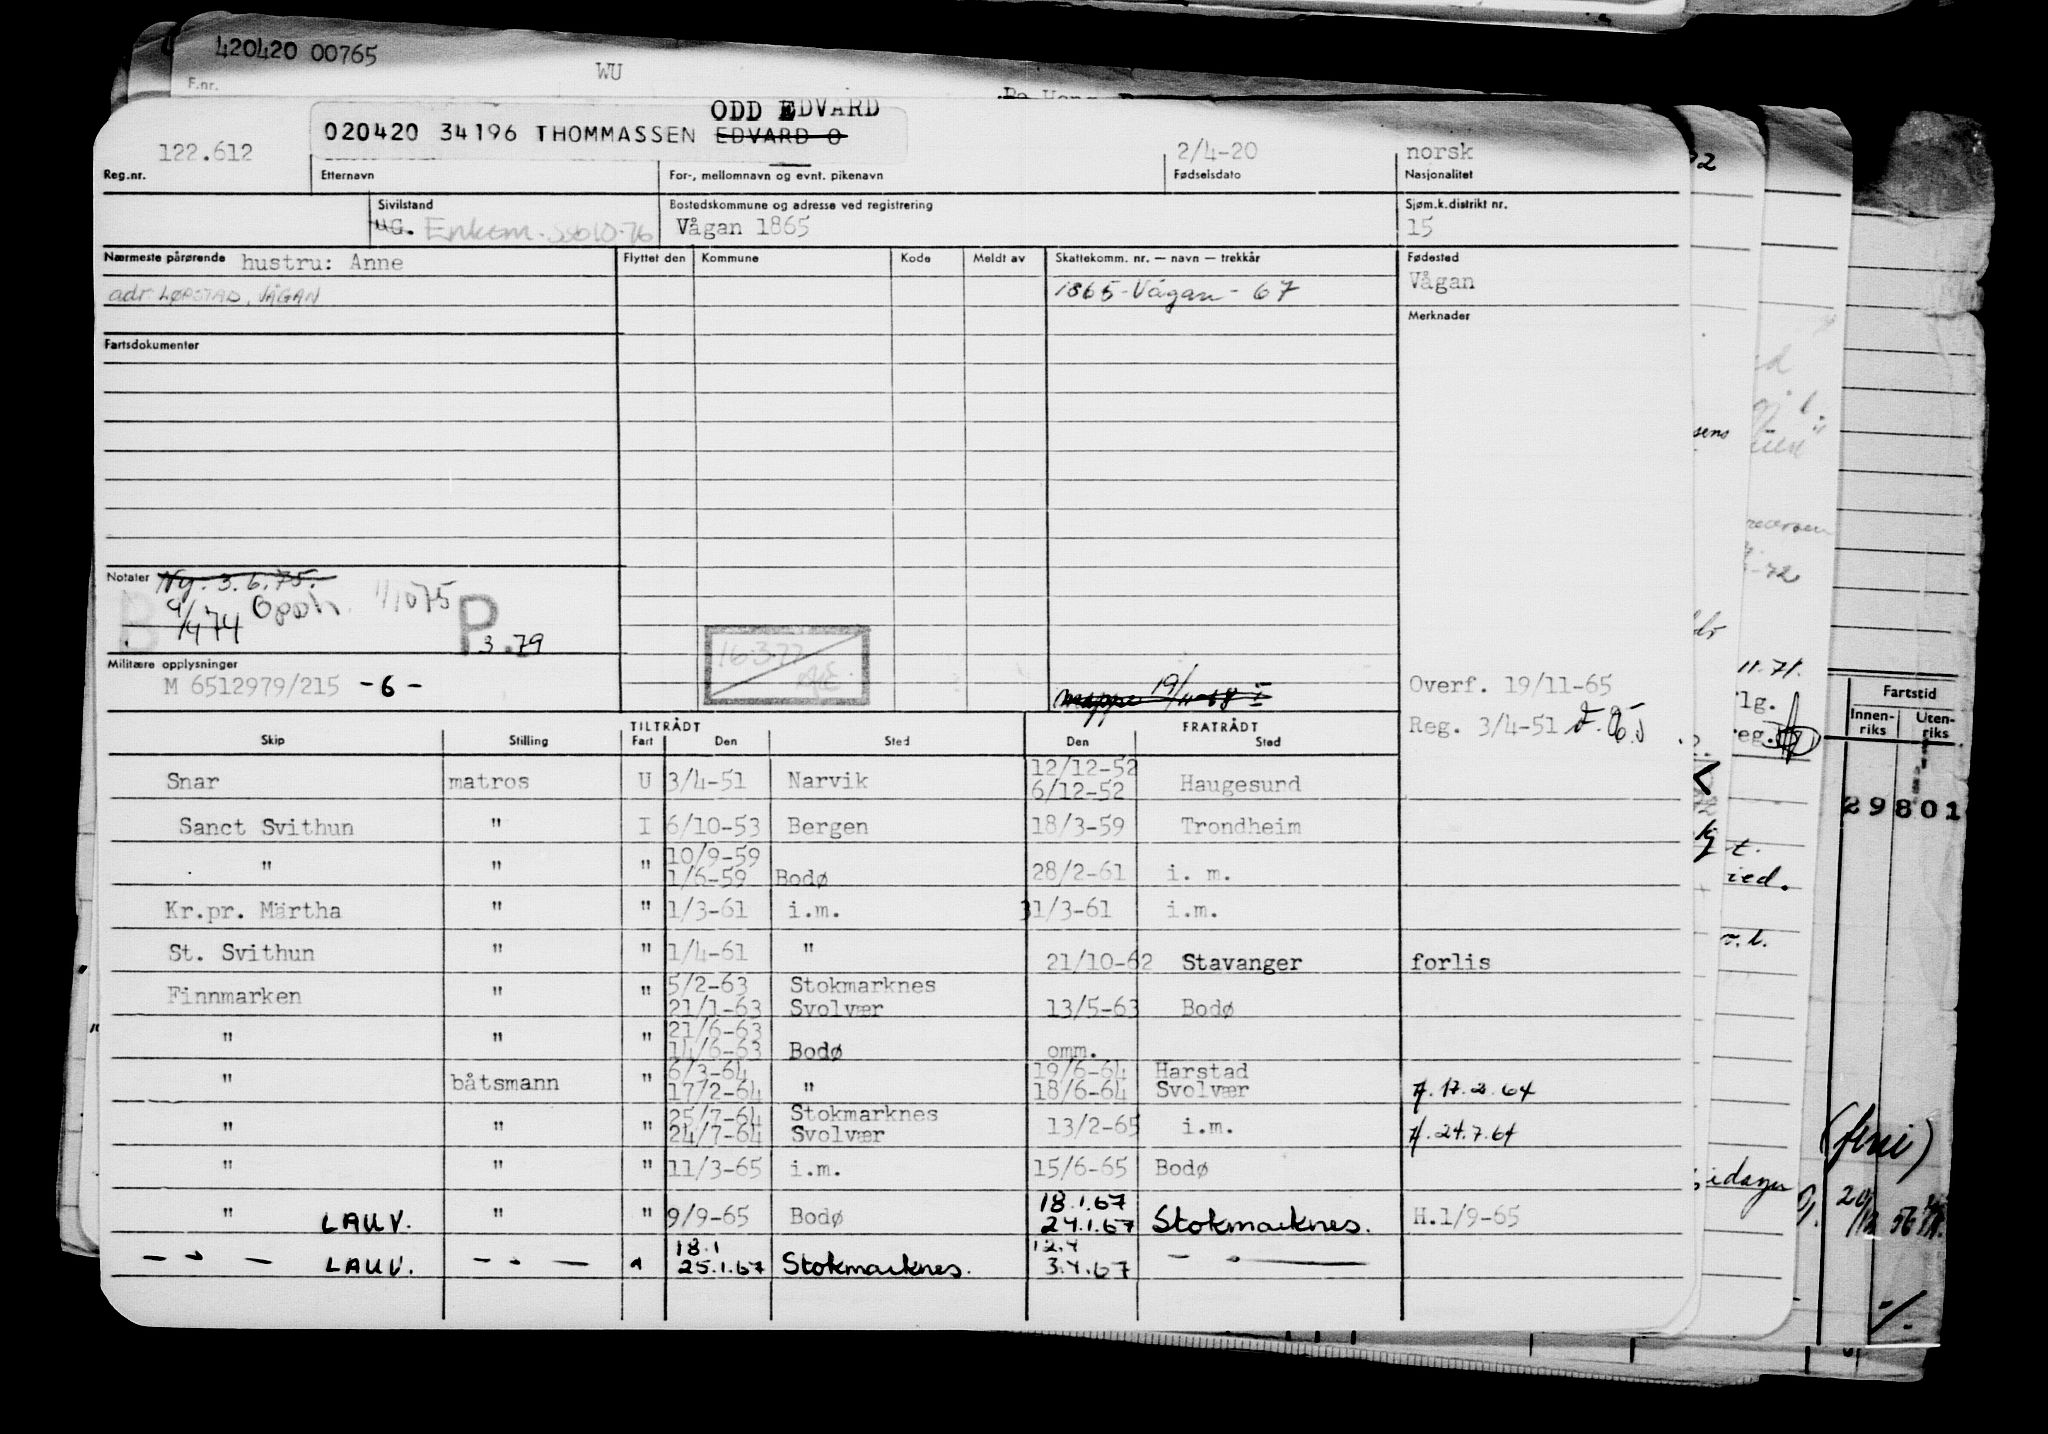 420420 00765
F.nr.
WU
ODD EDVARD
020420 34196 THOMMASSEN EDVARD O
122.612 2/4-20 norsk
Reg.nr. Etternavn For-, mellomnavn og evnt. pikenavn Fødselsdato Nasjonalitet
Sivilstand Bostedskommune og adresse ved registrering Sjøm.k.distrikt nr.
UG. Vågan 1865 15
Nærmeste pårørende hustru: Anne Flyttet den Kommune Kode Meldt av Skattekomm. nr. — navn — trekkår Fødested
adr LØPSTAD, VÅGAN 1865-Vågan-67 Vågan
Merknader
Fartsdokumenter
Notater Ny. 3.6.75.
9/474 Oppoh. 11075 P
3.79
16.3.77
Militære opplysninger
M 6512979/215 -6- mappe 19/11-68 Overf. 19/11-65
Reg. 3/4-51
TILTRÅDT FRATRÅDT
Skip Stilling Fart Den Sted Den Sted
Snar matros U 3/4-51 Narvik 12/12-52 6/12-52 Haugesund
Sanct Svithun " I 6/10-53 Bergen 18/3-59 Trondheim
" " " 10/9-59 1/6-59 Bodø 28/2-61 i. m.
Kr.pr. Märtha " " 1/3-61 i.m. 31/3-61 i.m.
St. Svithun " " 1/4-61 " 21/10-62 Stavanger forlis
Finnmarken " " 5/2-63 Stokmarknes 21/1-63 Svolvær 13/5-63 Bodø
" " " 21/6-63 14/6-63 Bodø omm.
" båtsmann " 6/3-64 17/2-64 " 19/6-64 Harstad 18/6-64 Svolvær 17.2.64
" " " 25/7-64 Stokmarknes 24/7-64 Svolvær 13/2-65 i.m. 24.7.64
" " " 11/3-65 i.m. 15/6-65 Bodø
" LAUV. " " 9/9-65 Bodø 18.1.67 24.1.67 Stokmarknes. H.1/9-65
— " — LAUV. — " — " 18.1 25.1.67 Stokmarknes. 12.4 3.4.67 — " —
Fartstid
Innen-riks Uten-riks
29801
11.71.